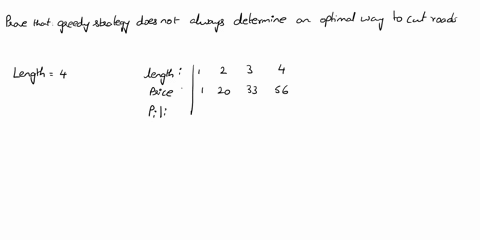 Prove that greedy strategy does not always determine an optimal way to cut roads
Length = 4
length: 1 2 3 4
Price 1 20 33 56
Pi/i